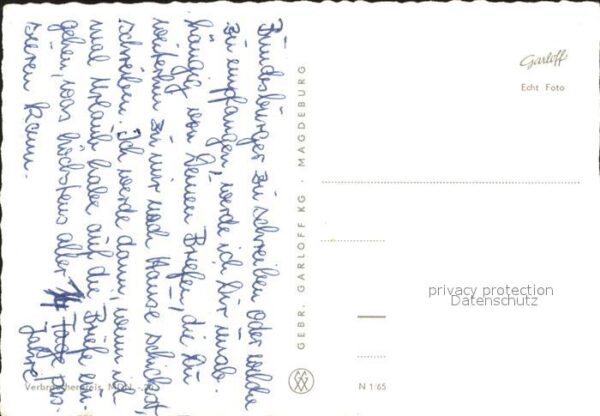 Bundesbürger zu schreiben oder welche
zu empfangen, werde ich Dir unab-
hängig von Deinen Briefen, die Du
weiterhin zu mir nach Hause schickst,
schreiben. Ich werde dann, wenn ich
mal Urlaub habe auf die Briefe ein-
gehen, was höchstens aller 14 Tage pas-
Jahre
sieren kann.
GEBR. GARLOFF KG · MAGDEBURG
Garloff
Echt Foto
privacy protection
Datenschutz
N 1/65
Verbraucherpreis MDN